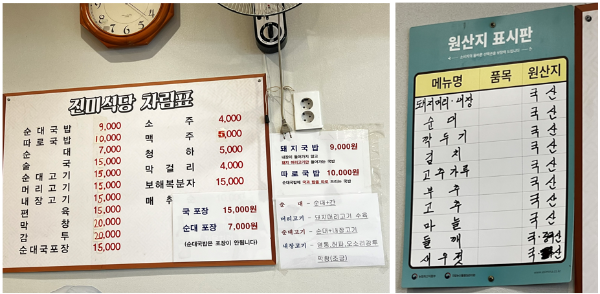 진미식당 차림표
순대국밥 9,000
따로국밥 10,000
순대 7,000
술국 15,000
순대고기 15,000
머리고기 15,000
내장고기 15,000
편육 15,000
막창 20,000
감투 20,000
순대국포장 15,000
소주 4,000
맥주 5,000
청하 5,000
막걸리 4,000
보해복분자 15,000
매
국 포장 15,000원
순대 포장 7,000원
(순대국밥은 포장이 안됩니다)
돼지 국밥 9,000원
따로 국밥 10,000원
순 대 - 순대+간
머리고기 - 돼지머리고기 수육
순대고기 - 순대+내장고기
내장고기 - 염통,허파,오소리감투
막창(조금)
원산지 표시판
메뉴명 품목 원산지
돼지머리·내장 국산
순대 국산
깍두기 국산
김치 국산
고추가루 국산
부추 국산
고추 국산
마늘 국산
들깨 국산
새우젓 국산